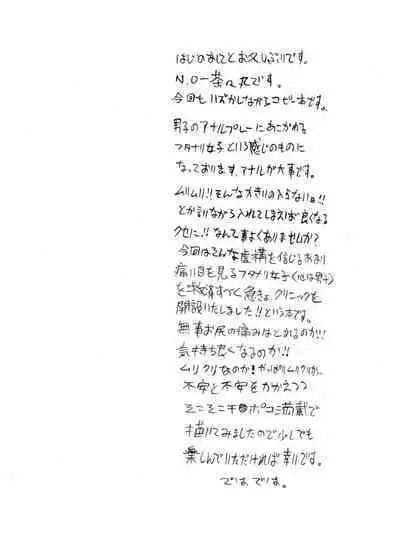 はじめましてとお久しぶりです。
N.O-茶々丸です。
今回も ハズかしながらコピー本です。
男子のアナルプレーにあこがれる
フタナリ女子という感じのものに
なっております。アナルが大事です。
ムリムリ!!そんな大きいの入らない!!
とか言いながら入れてしまえば良くなる
クセに!!なんて事よくありませんか?
今回はそんな虚構を信じるあまり
痛い目を見るフタナリ女子(他は男子)
を救済すべく急きょクリニックを
開設いたしました!!という本です。
無事お尻の痛みはとれるのか!!
気持ち良くなるのか!!
ムリクリなのか!
不安と不安をかかえつつ
そこそこ ポコ満載で
描いてみましたので少しでも
楽しんでいただければ幸いです。
ではでは。